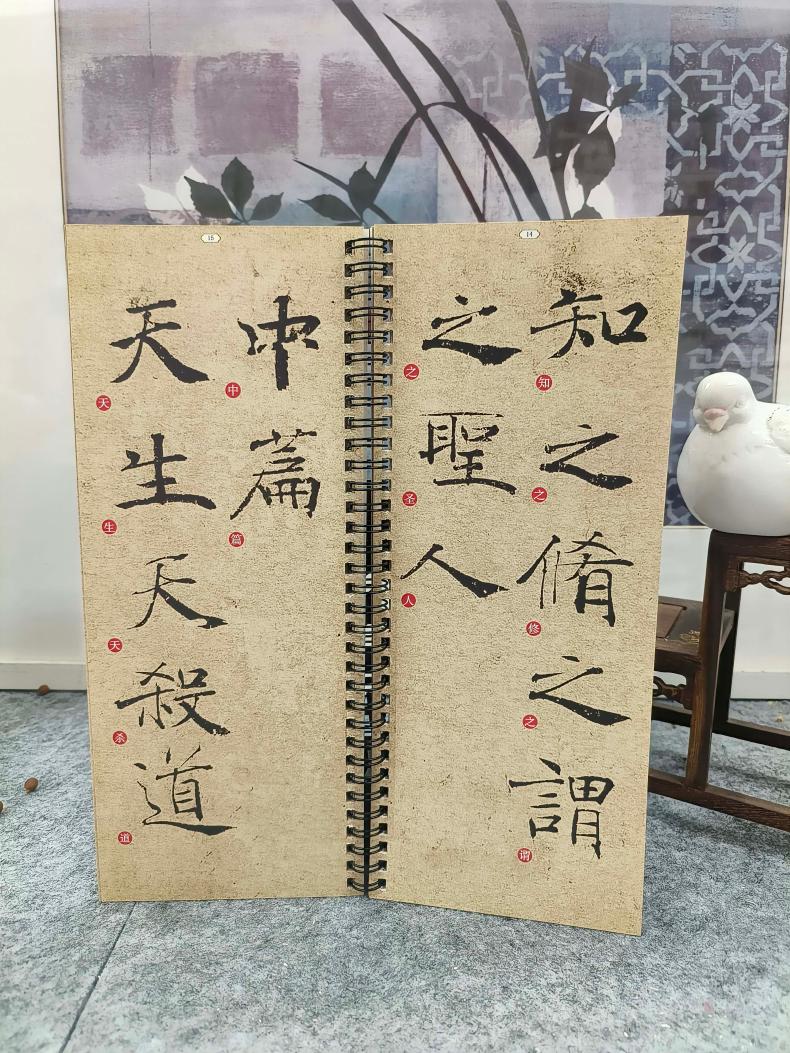 14
知之脩之謂
知之修之谓
之聖人
之圣人
15
中篇
中篇
天生天殺道
天生天杀道